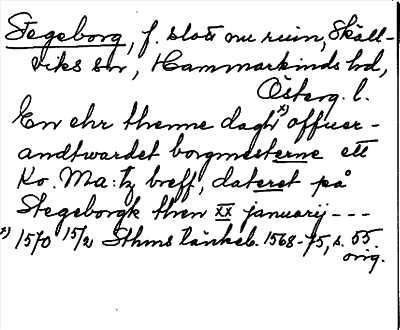 Stegeborg, f. slott nu ruin, Skäll-
viks sn, Hammarkinds hd,
Österg. l.
En ehr thenne dagh x) offuer-
andtwardet borgmesterne ett
Ko. Ma:tz breff, dateret på
Stegeborgk then XX januarij ---
x) 1570 15/2 Sthms tänkeb. 1568-75, s. 55
orig.